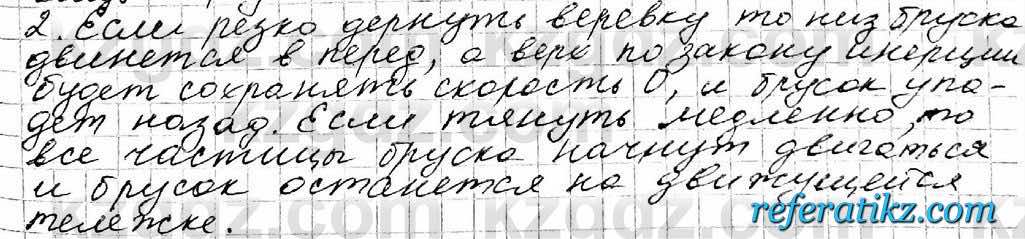 2. Если резко дернуть веревку то низ бруска
двинется в перед, а верх по закону инерции
будет сохранять скорость 0, и брусок упа-
дет назад. Если тянуть медленно, то
все частицы бруска начнут двигаться
и брусок останется на движущейся
тележке.
referatikz.com